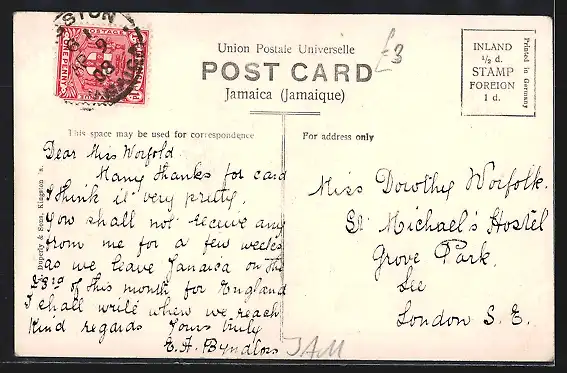 KINGSTON
POSTAGE
ONE PENNY
Union Postale Universelle
POST CARD
Jamaica (Jamaique)
£3
INLAND
½ d.
STAMP
FOREIGN
1 d.
Printed in Germany
This space may be used for correspondence
For address only
Duperly & Sons, Kingston
Dear Miss Worfold
Many thanks for card
I think it very pretty.
You shall not receive any
from me for a few weeks
as we leave Jamaica on the
23rd of this month for England
I shall write when we reach
Kind regards Yours truly
E. A. Byndloss
Miss Dorothy Worfolk.
St Michael's Hostel
Grove Park.
Lee
London S. E.
JAM